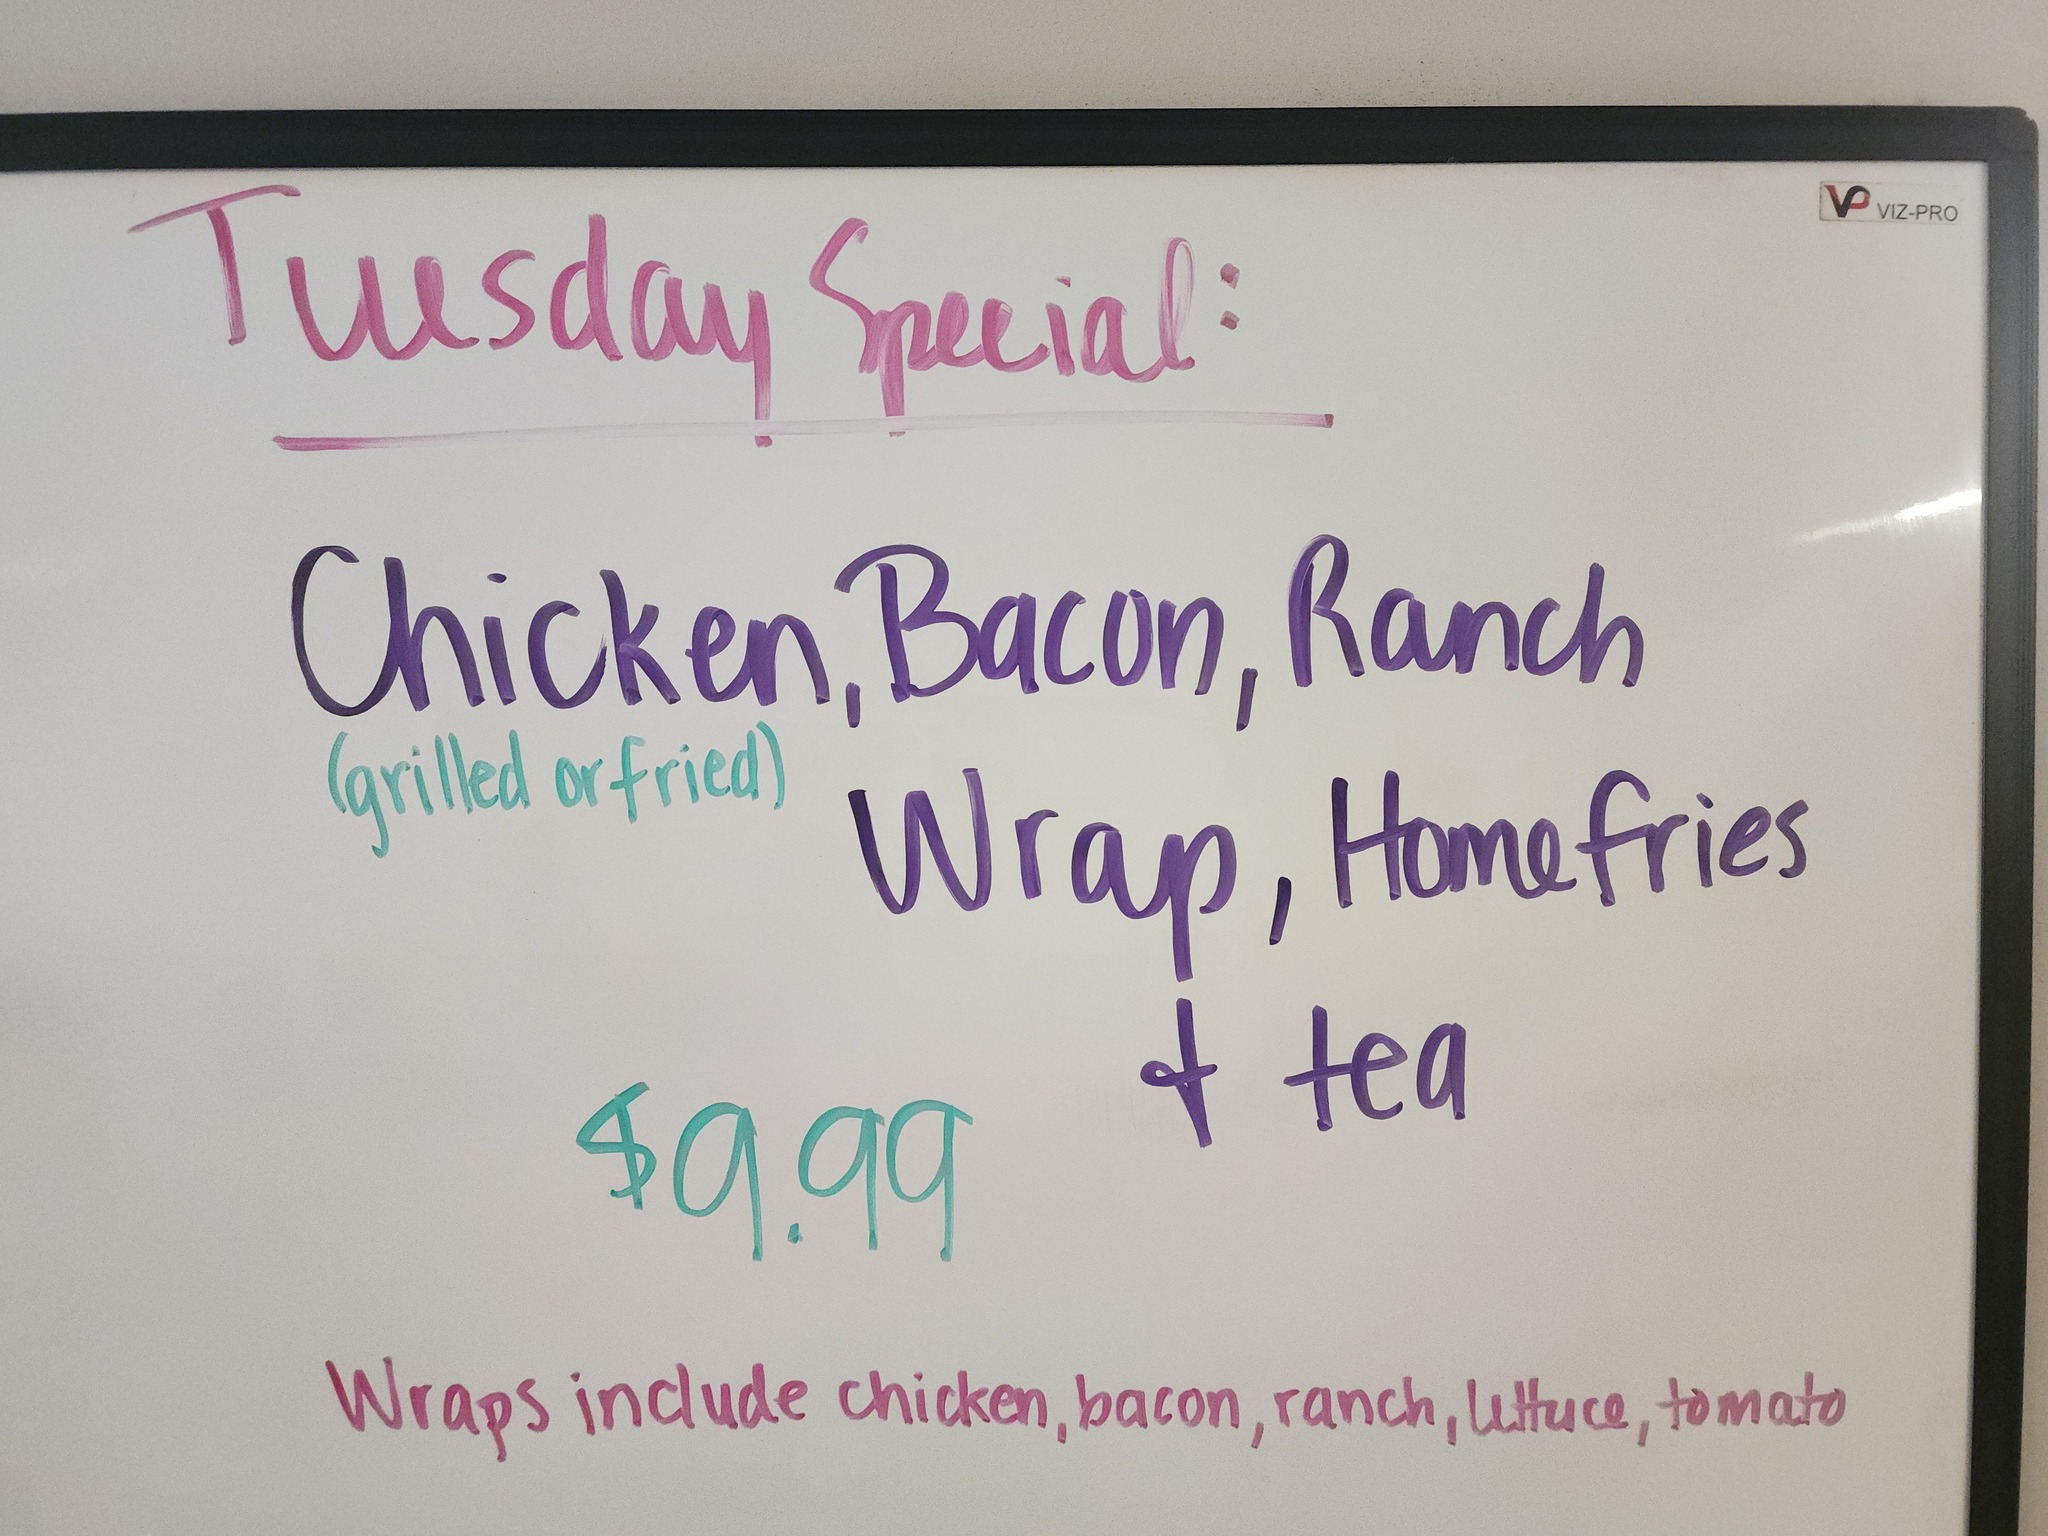 VP VIZ-PRO
Tuesday Special:
Chicken, Bacon, Ranch
(grilled or fried)
Wrap, Homefries
& tea
$9.99
Wraps include chicken, bacon, ranch, lettuce, tomato